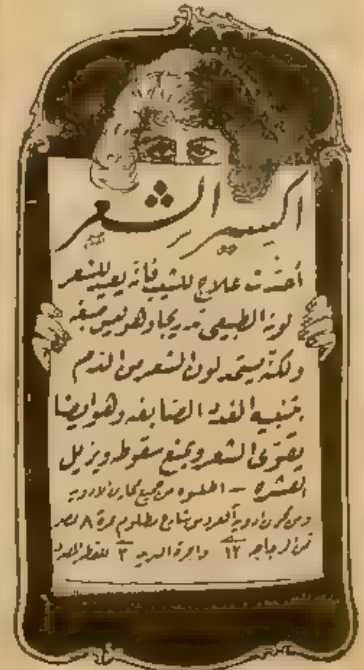 اكسير الشعر
أحدث علاج للشيب فانه يعيد للشعر
لونه الطبيعى تدريجا وهو ليس صبغه
ولكنه يستمد لون الشعر من الدم
بتنبيه الغدد الصابغه وهو ايضا
يقوى الشعر ويمنع سقوطه ويزيل
القشره – اطلبوه من جميع مخازن الادويه
ومن مخزن ادوية شارع مظلوم نمرة ٨ بمصر
ثمن الزجاجه ١٢ واجرة البريد ٣ للقطر المصرى